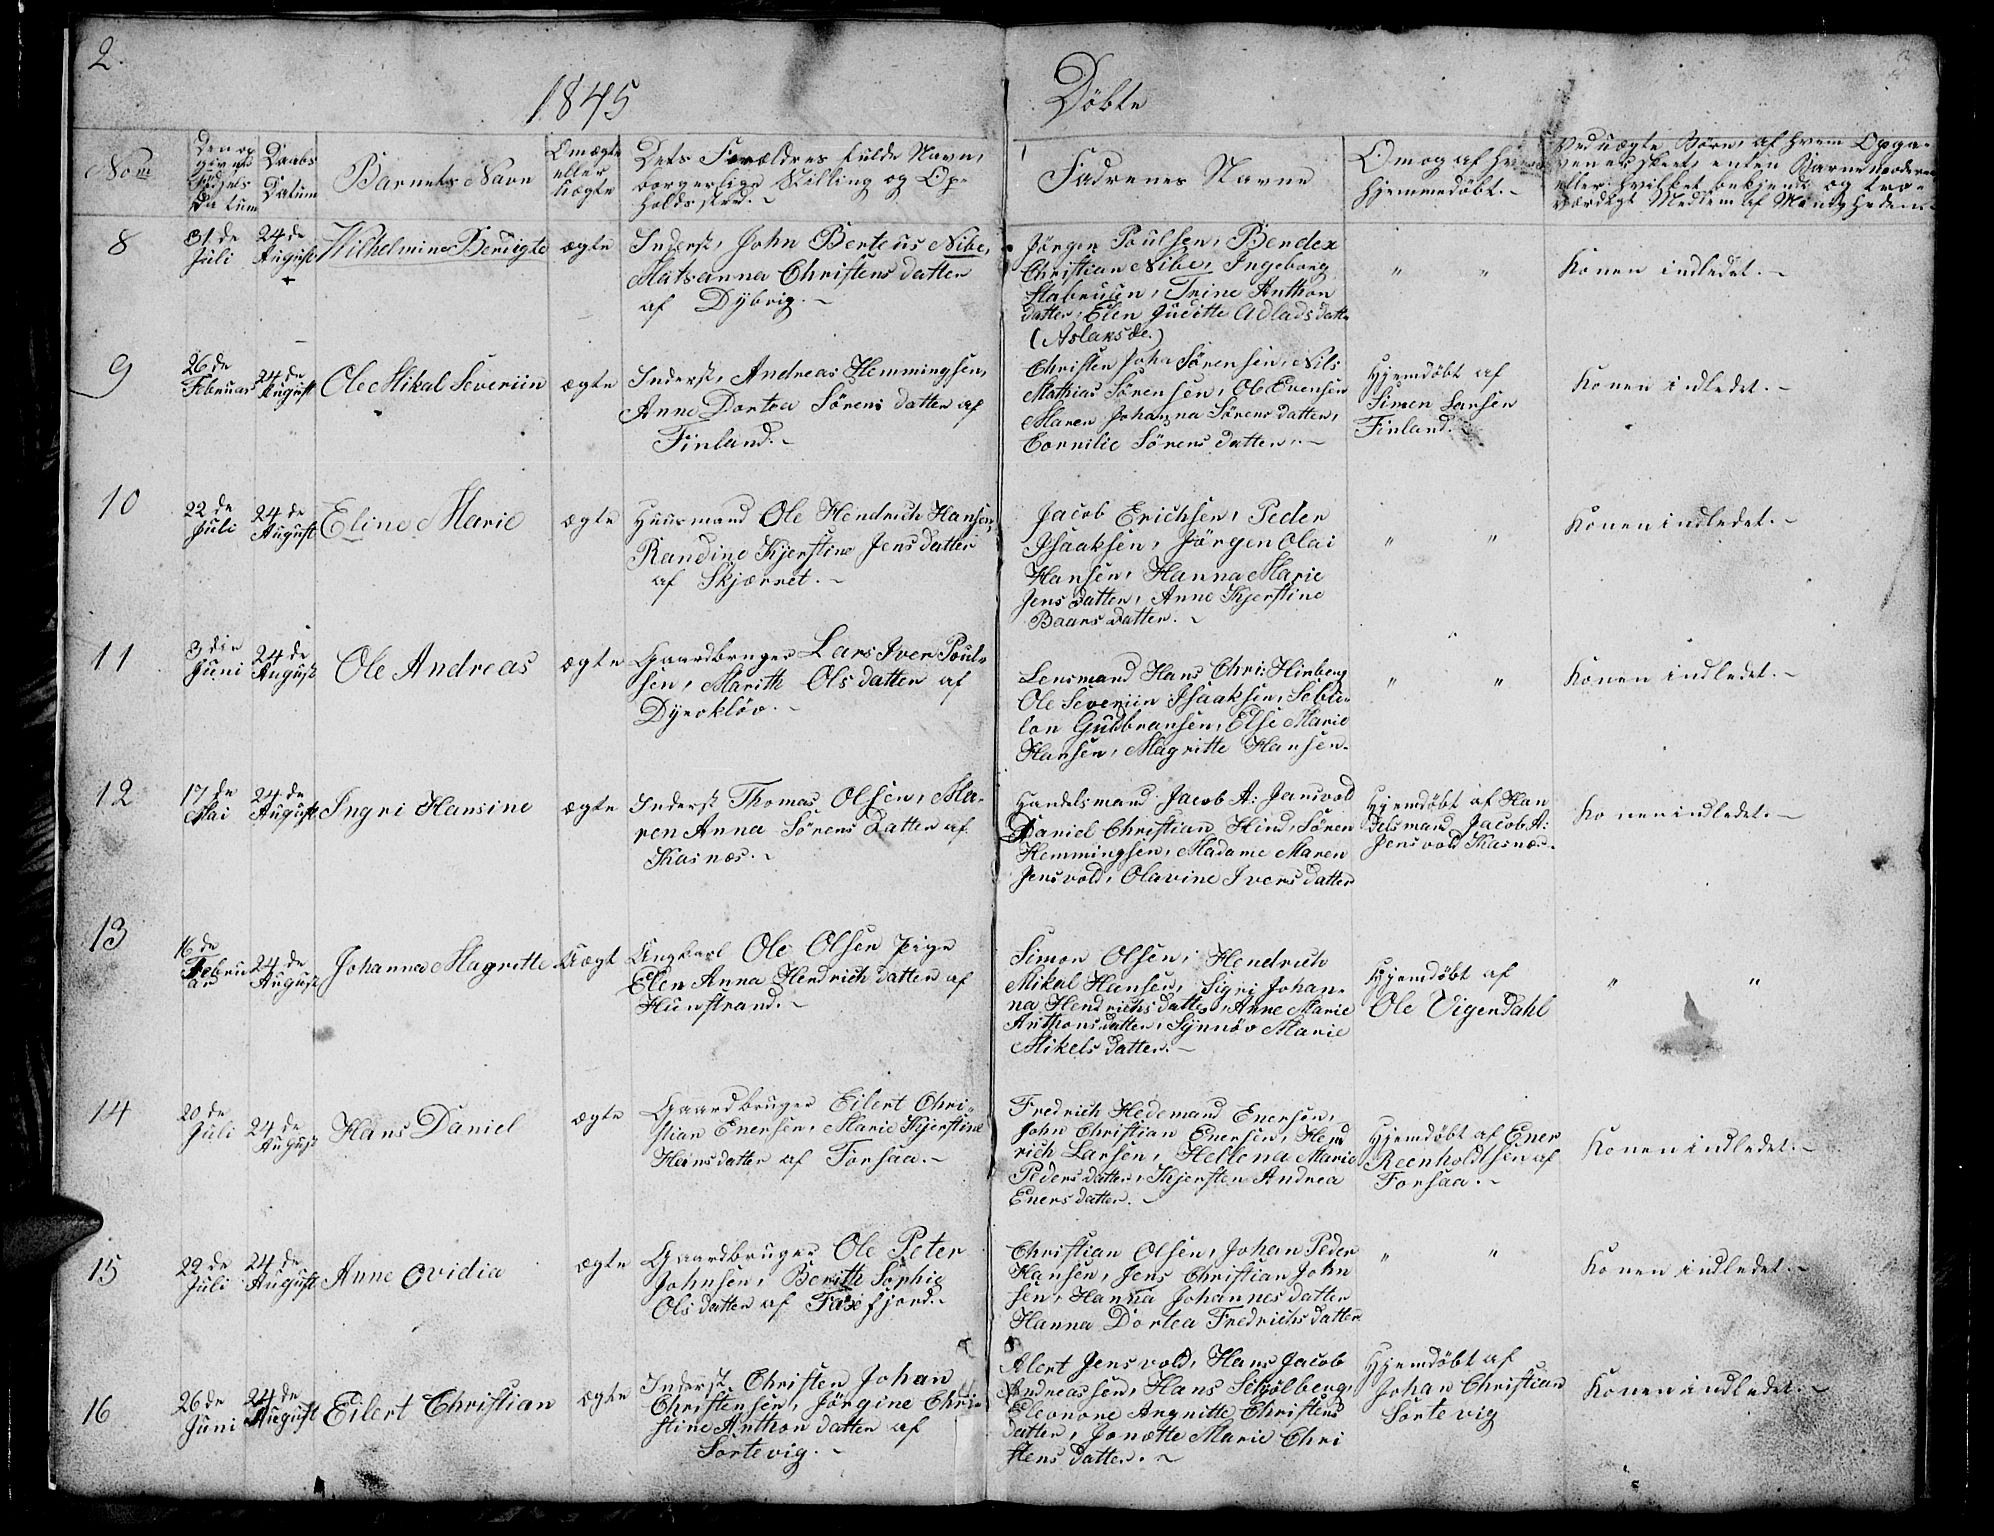 2.
1845
Døbte
Nom
Den op
givets
Fødsels
Datum
Daabs
Datum
Barnets Navn
Om ægte
eller
Uægte
Dets Forældres fulde Navn,
borgerlige Stilling og Op-
holdssted.
Fadrenes Navne
Om og af hvem
hjemmedøbt.
Ved uægte Børn, af hvem Opga-
ven er skeet, enten Barnemoderen
eller hvilket bekjendt og tro-
værdigt Medlem af Menigheden
8
31.de
Juli
24 de
August
Wilhelmine Benigte
ægte
Inderst, John Berteus Nibe,
Matsanna Christens datter
af Dybvig.
Jørgen Poulsen, Bendex
Christian Nibe, Ingeborg
Trine Anthon
datter, Elen Juditte Adlads datter
(Aslaks de.)
" "
Konen indledet.
9
26 de
Februar
24 de
August
Ole Mikal Severiin
ægte
Inderst, Andreas Hemmingsen,
Anne Dortea Sørens datter af
Finland.
Christen Joha Sørensen, Nils
Mathias Sørensen, Ole Evensen
Maren Johanna Sørens datter,
Cornilie Sørens datter.
Hjemdøbt af
Simen Larsen
Finland.
Konen indledet.
10
22 de
Juli
24 de
August
Eline Marie
ægte
Huusmand Ole Hendrich Hansen,
Randine Kjerstine Jens datter
af Skjærret.
Jacob Erichsen, Peder
Isaaksen, Jørgen Olai
Hansen, Hanna Marie
Jens datter, Anne Kjerstine
Baars datter.
" "
Konen indledet.
11
3 die
Juni
24 de
August
Ole Andreas
ægte
Gaardbruger Lars Iver Poul-
sen, Marith Ols datter af
Dyrokløv.
Lensmand Hans Chri: Hinberg
Ole Severiin Isaaksen,
Gudbransen, Else Marie
Hansen, Magritte Hansen.
" "
Konen indledet.
12
17 de
Mai
24 de
August
Ingri Hansine
ægte
Inderst Thomas Olsen, Ma-
ren Anna Sørens datter af
Kasnæs.
Handelsmand Jacob A: Jensvold
Daniel Christian Hind, Søren
Hemmingsen, Madame Maren
Jensvold, Olavine Ivers datter
Hjemdøbt af Han
delsmand Jacob A:
Jensvold Kasnæs.
Konen indledet.
13
16 de
Febru
ar
24 de
August
Johanna Magritte
Uægt
Ungkarl Ole Olsen pige
Elen Anna Hendrich datter af
Hunstrand.
Simon Olsen, Hendrich
Mikal Hansen, Sigri Johan-
na Hendrichs datter, Anne Marie
Anthons datter, Synnøv Marie
Mikels datter.
Hjemdøbt af
Ole Vigendahl
" "
14
20 de
Juli
24 de
August
Hans Daniel
ægte
Gaardbruger Eilert Chri-
stian Enersen, Marie Kjerstine
Heins datter af Forsaa.
Fredrich Hedemand Enersen,
John Christian Enersen, Hend
rich Larsen, Hellena Marie
Peders datter, Kjersten Andrea
Eners datter.
Hjemdøbt af Ener
Reenholdtsen af
Forsaa.
Konen indledet.
15
22 de
Juli
24 de
August
Anne Ovidia
ægte
Gaardbruger Ole Peter
Johnsen, Berith Sophie
Ols datter af Faxefjord.
Christian Olsen, Johan Peder
Hansen, Jens Christian John
sen, Hanna Johannes datter
Hanna Dortea Fredrichs datter
" "
Konen indledet.
16
26 de
Juni
24 de
August
Eilert Christian
ægte
Inderst Christen Johan
Christensen, Jørgine Chri-
stine Anthon datter af
Sortevig.
Alert Jensvold, Hans Jacob
Andreassen, Hans Schjølberg,
Eleonone Angnitte Christens
datter, Jonætte Marie Chri
stens datter.
Hjemdøbt af
Johan Christian
Sortevig
Konen indledet.